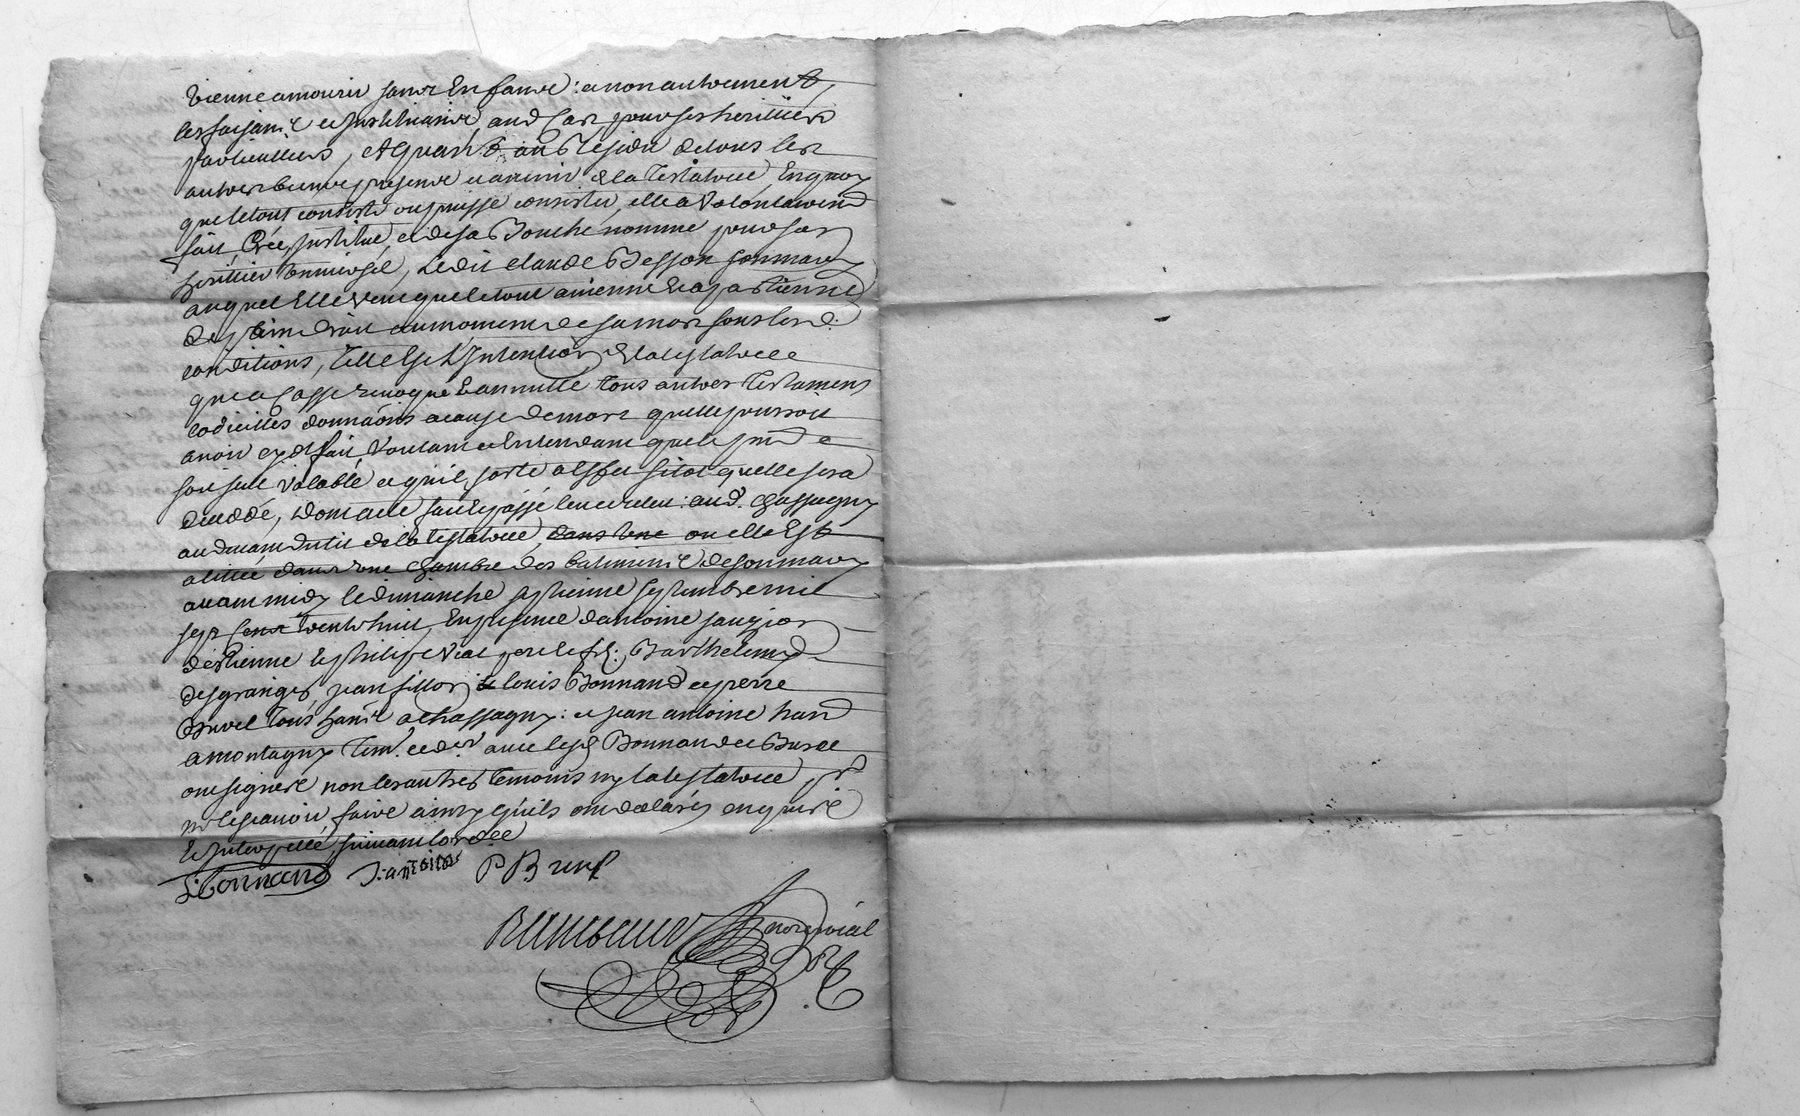 vienne a mourir sans Enfans : et non autrement
les faisant et Instituant aud Cas pour ses heritiers
particulliers, et quant au Residu de tous les
autres biens presens et avenir de la Testatrice, En quoy
que le tout consiste ou puisse consister, elle a volontairemt
fait, Créé, Institué, et de sa Bouche nommé pour son
heritier universel, Ledit Claude Besson son mary
auquel Elle veut que le tout avienne et apartienne
de plain droit au moment de sa mort sous les d.
conditions, Telle Est L'Intention de la testatrice
que a Cassé revoqué et annullé tous autres Testamens
codicilles donnaõns a cause de mort qu'elle pourroit
avoir cy dt fait, voulant et Entendant que le pnt
soit seul valable et qu'il sorte a Effet sitot qu'elle sera
decedée, dont acte fait et passé aud. Chassagny
au devant du lit de la testatrice, dans une ou elle Est
alittée dans une Chambre des batiments de son mary
avant midy le dimanche septieme septembre mil
sept Cent trente huit, En presence d'antoine
d'Etienne et philipe vial Barthelemy
desgranges, jean et louis Bonnand et pierre
Brurel tous hants a Chassagny : et jean antoine
a montagny Tem. avec les d Bonnand et
ont signéz non les autres temoins ny la testatrice, pr
ne le scavoir faire ainsy qu'ils ont declaréz enquis
et Interpellé, suivant lordce
L. Bonnand J. antoine P B rurel
nore royal